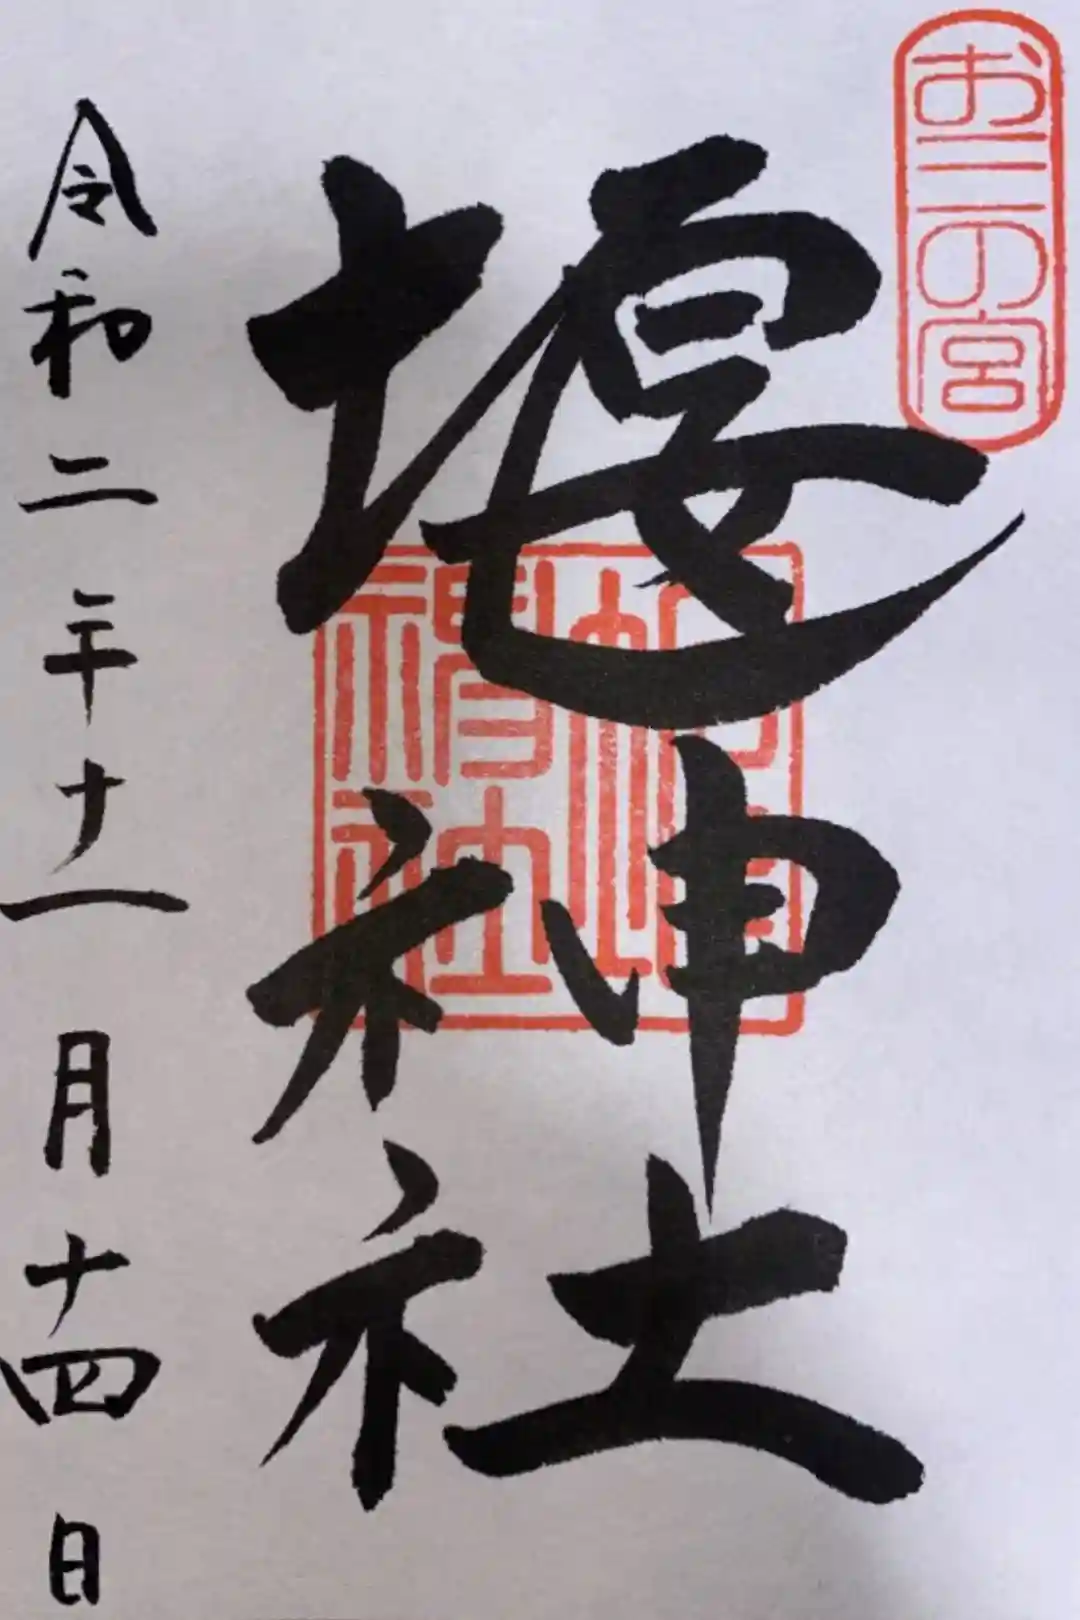 お三の宮
堰神社
堰神社
令和二年十一月十四日